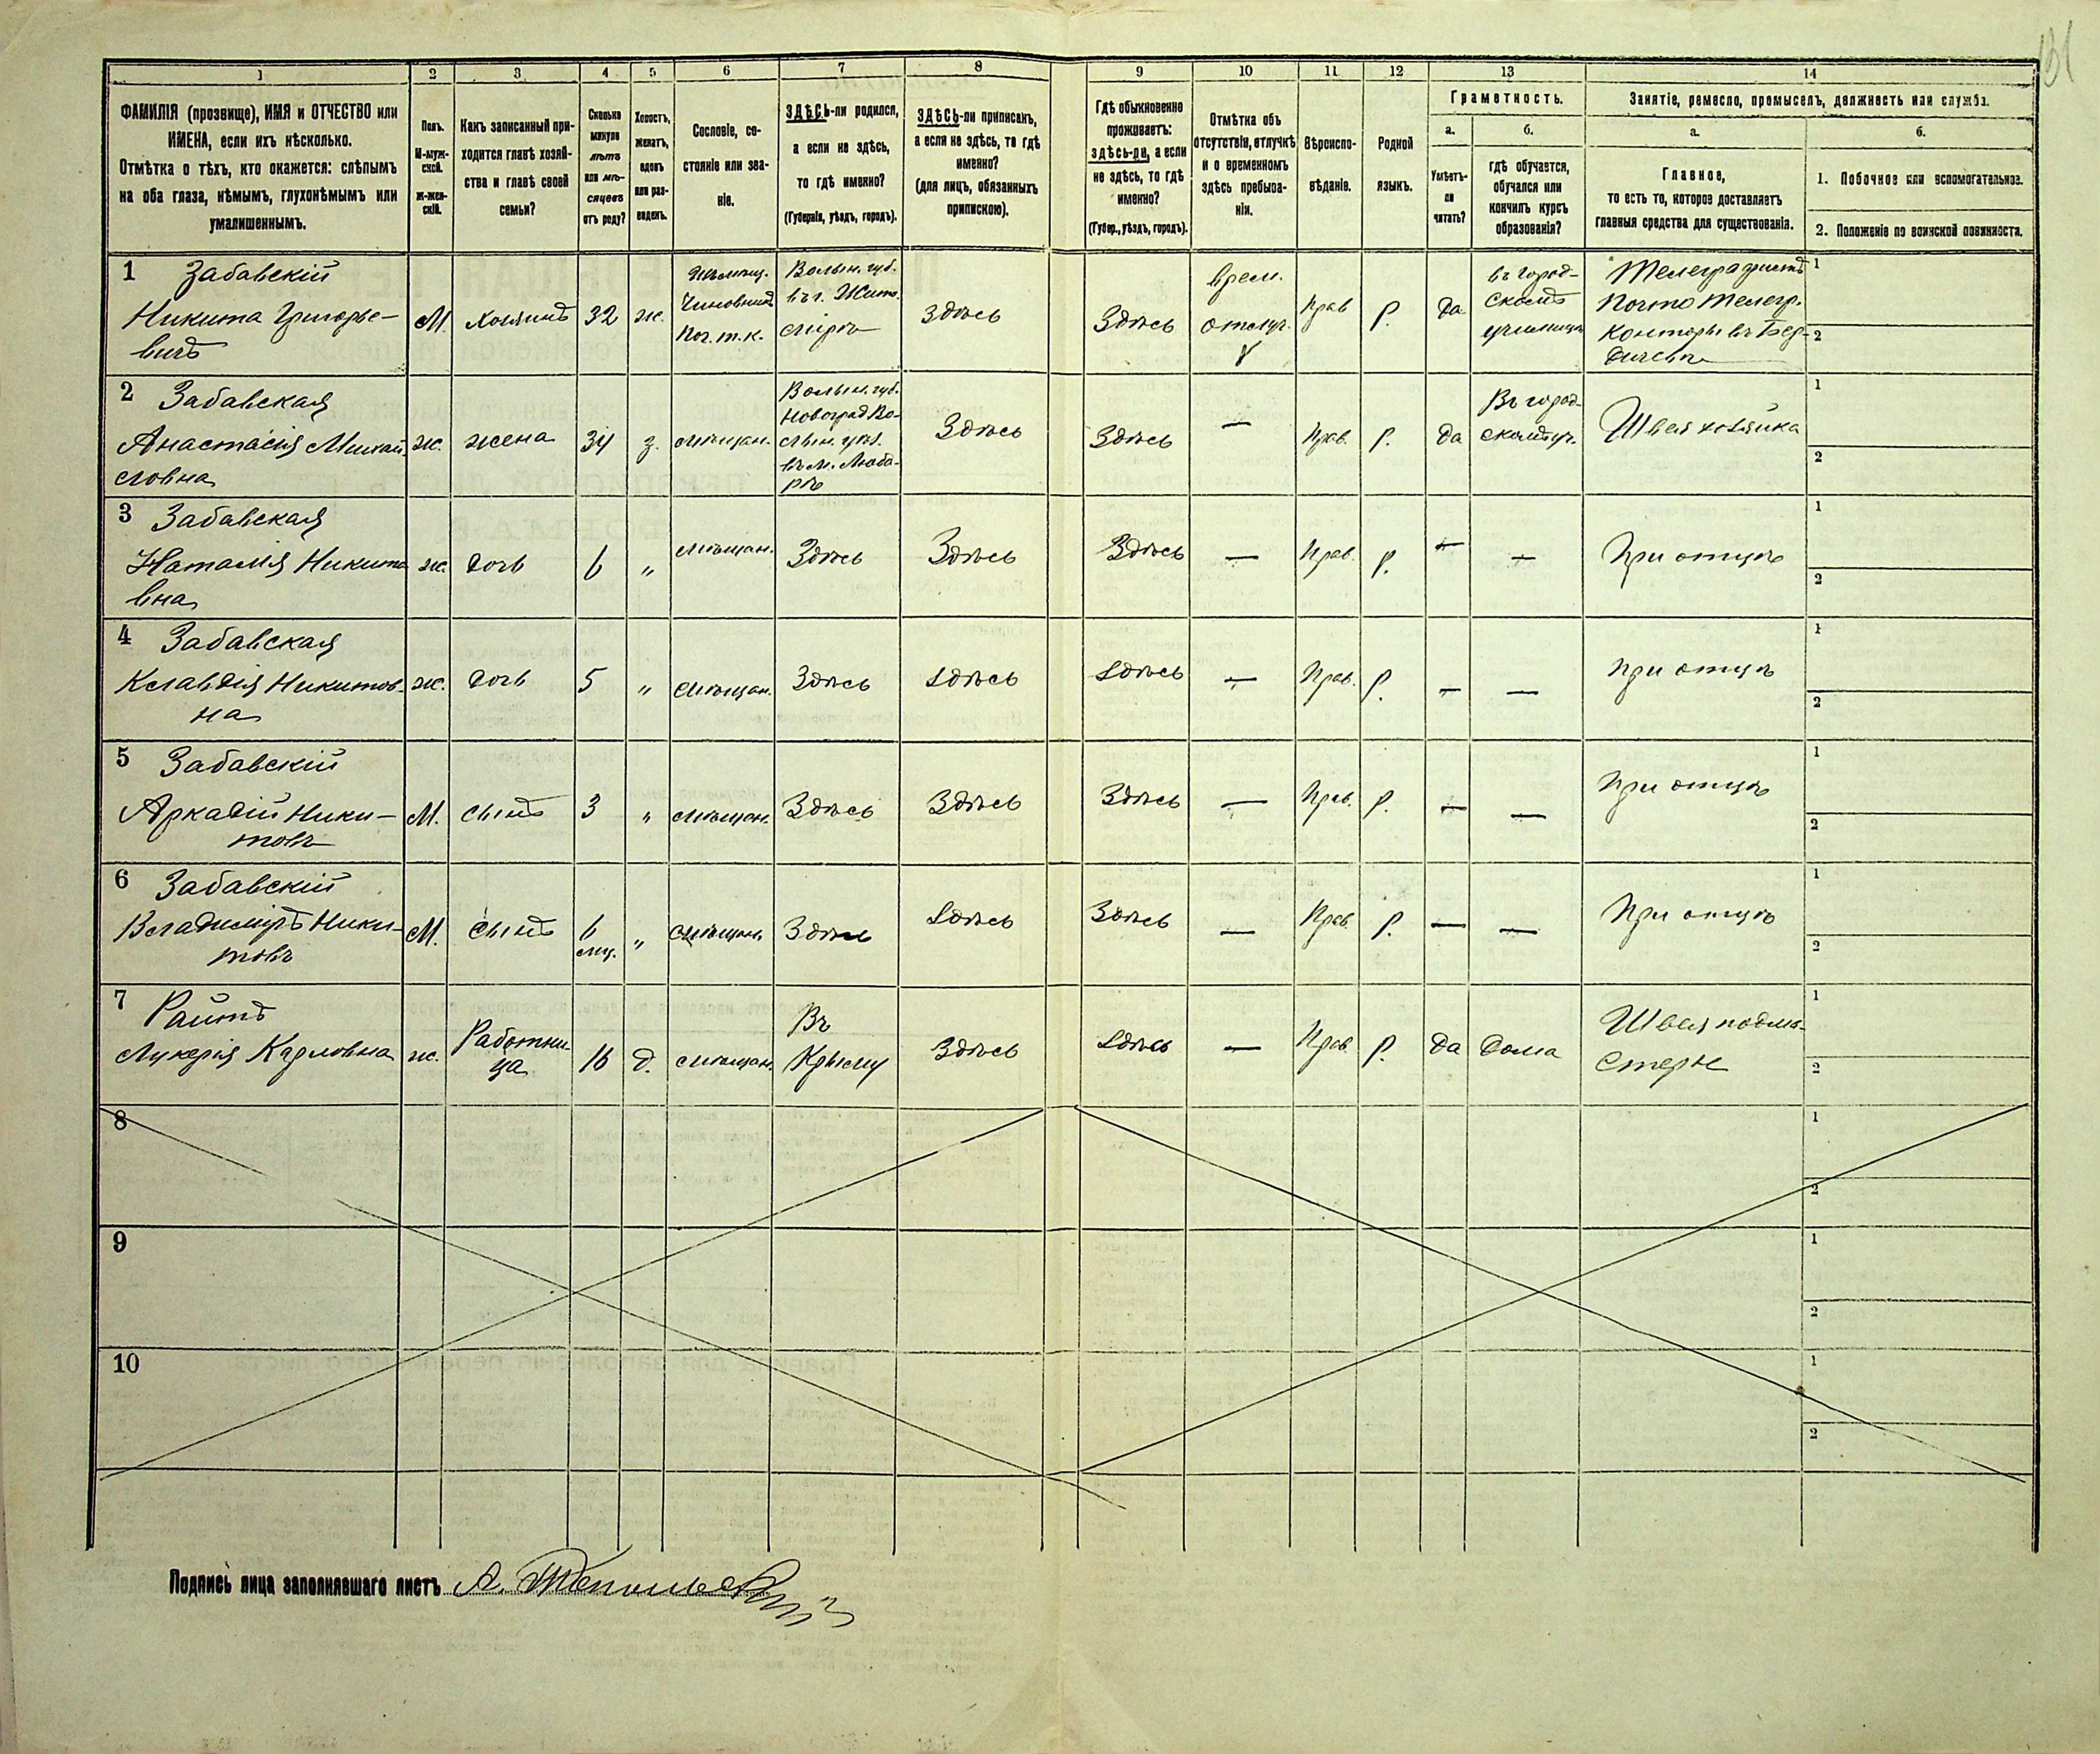 131
1 2 3 4 5 6 7 8 9 10 11 12 13 14
ФАМИЛІЯ (прозвище), ИМЯ и ОТЧЕСТВО или
ИМЕНА, если ихъ нѣсколько.
Отмѣтка о тѣхъ, кто окажется: слѣпымъ
на оба глаза, нѣмымъ, глухонѣмымъ или
умалишеннымъ.
Полъ.
М-муж-
ской.
Ж-жен-
скій.
Какъ записанный при-
ходится главѣ хозяй-
ства и главѣ своей
семьи?
Сколько
минуло
лѣтъ
или мѣ-
сяцевъ
отъ роду?
Холостъ,
женатъ,
вдовъ
или раз-
веденъ.
Сословіе, со-
стояніе или зва-
ніе.
ЗДѢСЬ-ли родился,
а если не здѣсь,
то гдѣ именно?
(Губернія, уѣздъ, городъ).
ЗДѢСЬ-ли приписанъ,
а если не здѣсь, то гдѣ
именно?
(для лицъ, обязанныхъ
припискою).
Гдѣ обыкновенно
проживаетъ:
здѣсь-ли, а если
не здѣсь, то гдѣ
именно?
(Губер., уѣздъ, городъ).
Отмѣтка объ
отсутствіи, отлучкѣ
и о временномъ
здѣсь пребыва-
ніи.
Вѣроиспо-
вѣданіе.
Родной
языкъ.
Грамотность.
а.
Умѣетъ-
ли
читать?
б.
гдѣ обучается,
обучался или
кончилъ курсъ
образованія?
Занятіе, ремесло, промыселъ, должность или служба.
а.
Главное,
то есть то, которое доставляетъ
главныя средства для существованія.
б.
1. Побочное или вспомогательное.
2. Положеніе по воинской повинности.
1 Забавскій
Никита Григорье-
вичъ
М.
Хозяинъ
32
ж.
Чиновникъ
Поч. т. к.
Волын. губ.
въ г. Жито-
мірѣ
Здѣсь
Здѣсь
врем.
отлуч.
Прав
Р.
Да
въ город-
скомъ
училищѣ
Телеграфистъ
Почто Телегр.
Конторы въ Бер-
дичевѣ
1
2
2 Забавская
Анастасія Михай-
ловна
ж.
жена
34
з.
мѣщан.
Волын. губ.
Новоград Во-
лын. уѣз.
въ м. Люба-
рѣ
Здѣсь
Здѣсь
—
Прав.
Р.
Да
Въ город-
скомъ уч.
Швея хозяйка
1
2
3 Забавская
Наталія Никито
вна
ж.
дочь
6
"
мѣщан.
Здѣсь
Здѣсь
Здѣсь
—
Прав.
Р.
—
—
При отцѣ
1
2
4 Забавская
Клавдія Никитов-
на
ж.
дочь
5
"
мѣщан.
Здѣсь
Здѣсь
Здѣсь
—
Прав.
Р.
—
—
При отцѣ
1
2
5 Забавскій
Аркадій Ники-
товъ
М.
сынъ
3
"
мѣщан.
Здѣсь
Здѣсь
Здѣсь
—
Прав.
Р.
—
—
При отцѣ
1
2
6 Забавскій
Владиміръ Ники-
товъ
М.
сынъ
6
мц.
"
мѣщан.
Здѣсь
Здѣсь
Здѣсь
—
Прав.
Р.
—
—
При отцѣ
1
2
7 Райтъ
Лукерія Карловна
ж.
Работни-
ца
16
д.
мѣщан.
Въ
Крыму
Здѣсь
Здѣсь
—
Прав.
Р.
Да
Дома
Швея подма-
стерье
1
2
8
1
2
9
1
2
10
1
2
Подпись лица заполнявшаго листъ А.